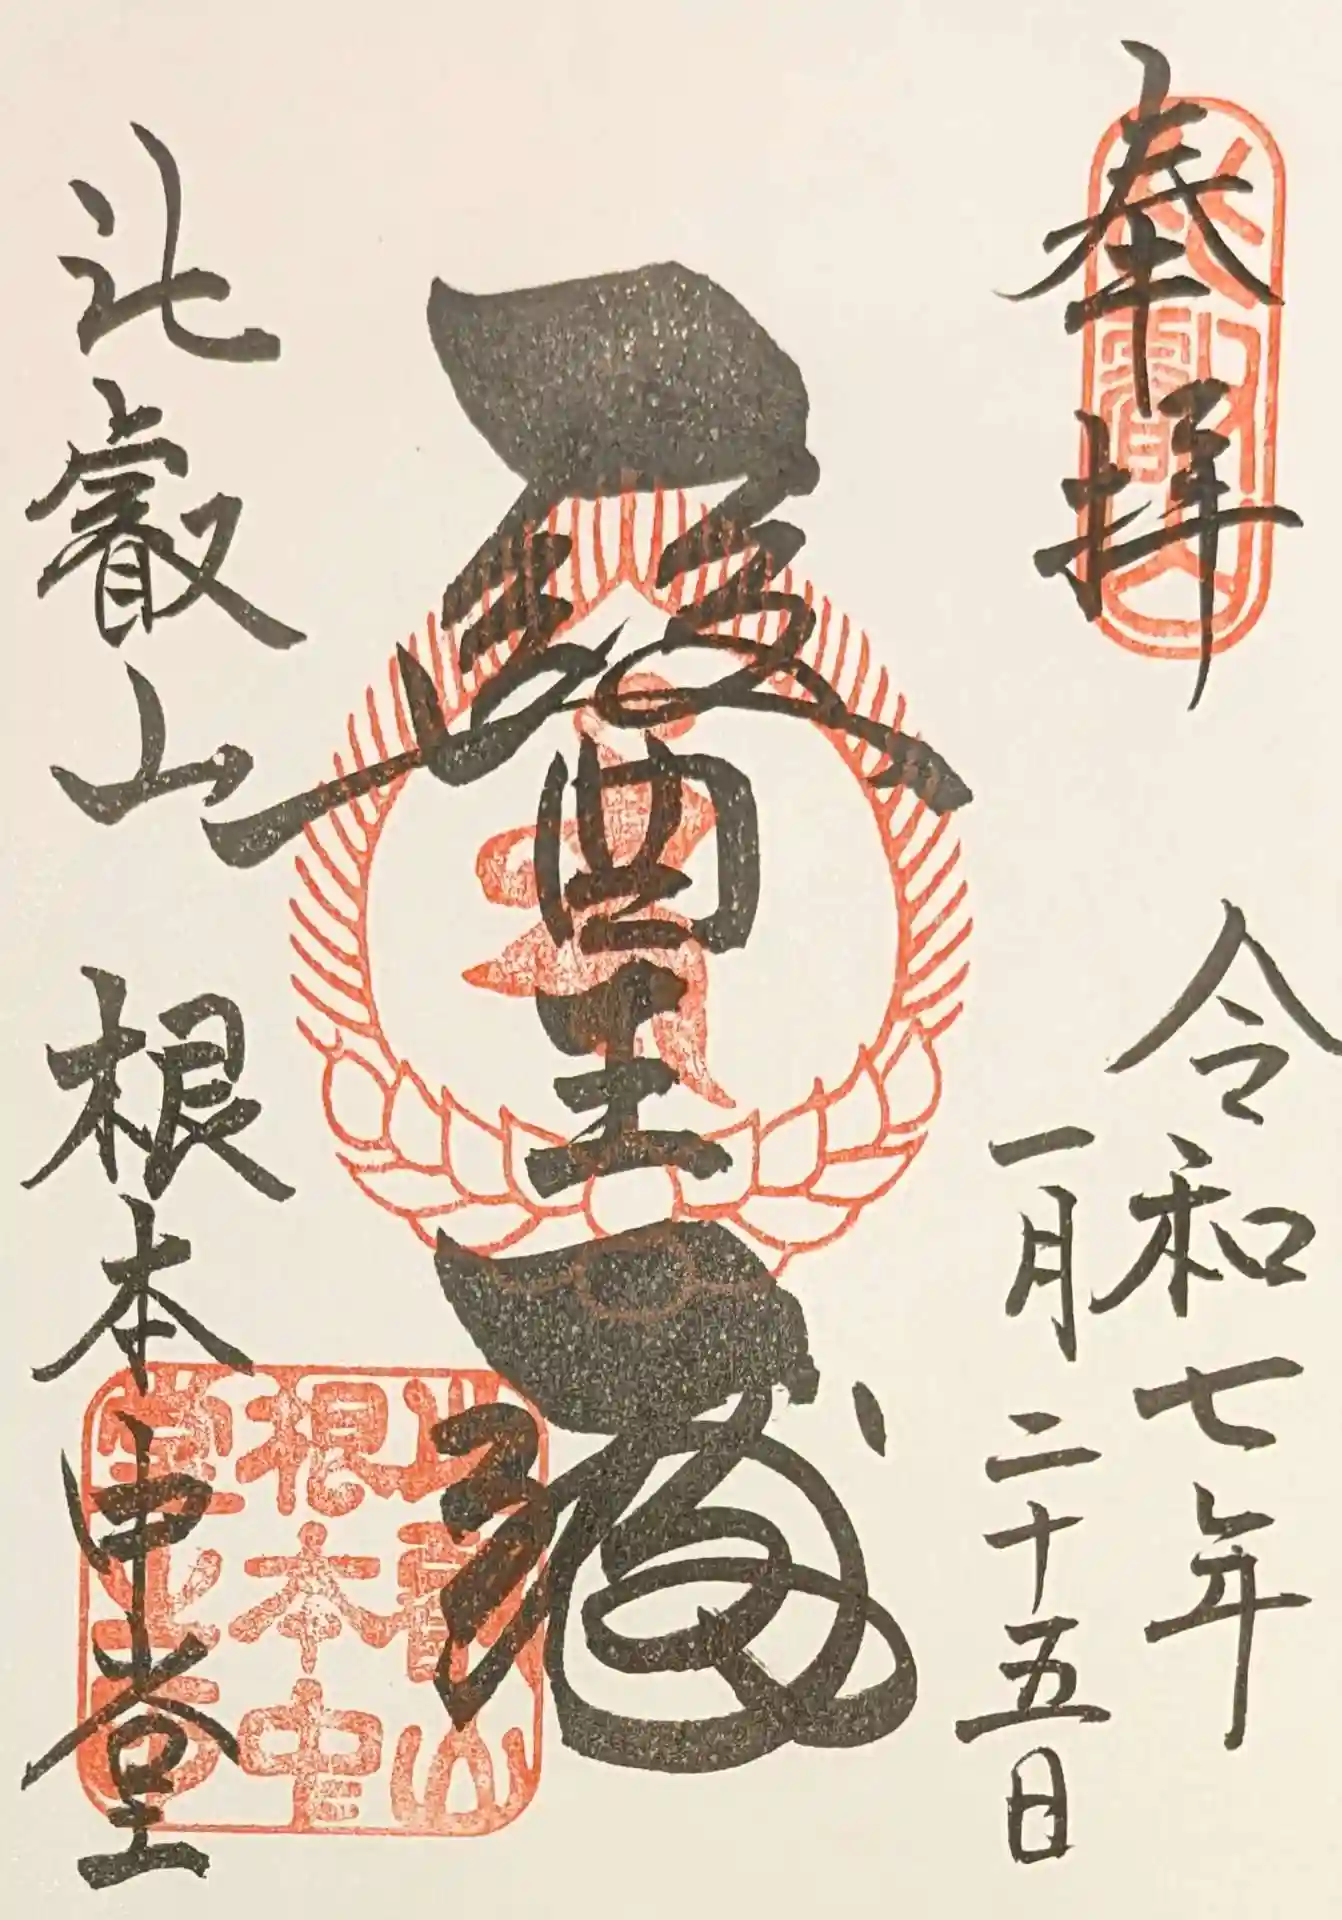 奉拝
令和七年
一月二十五日
醫王殿
比叡山 根本中堂
比叡山
根本中
堂之印